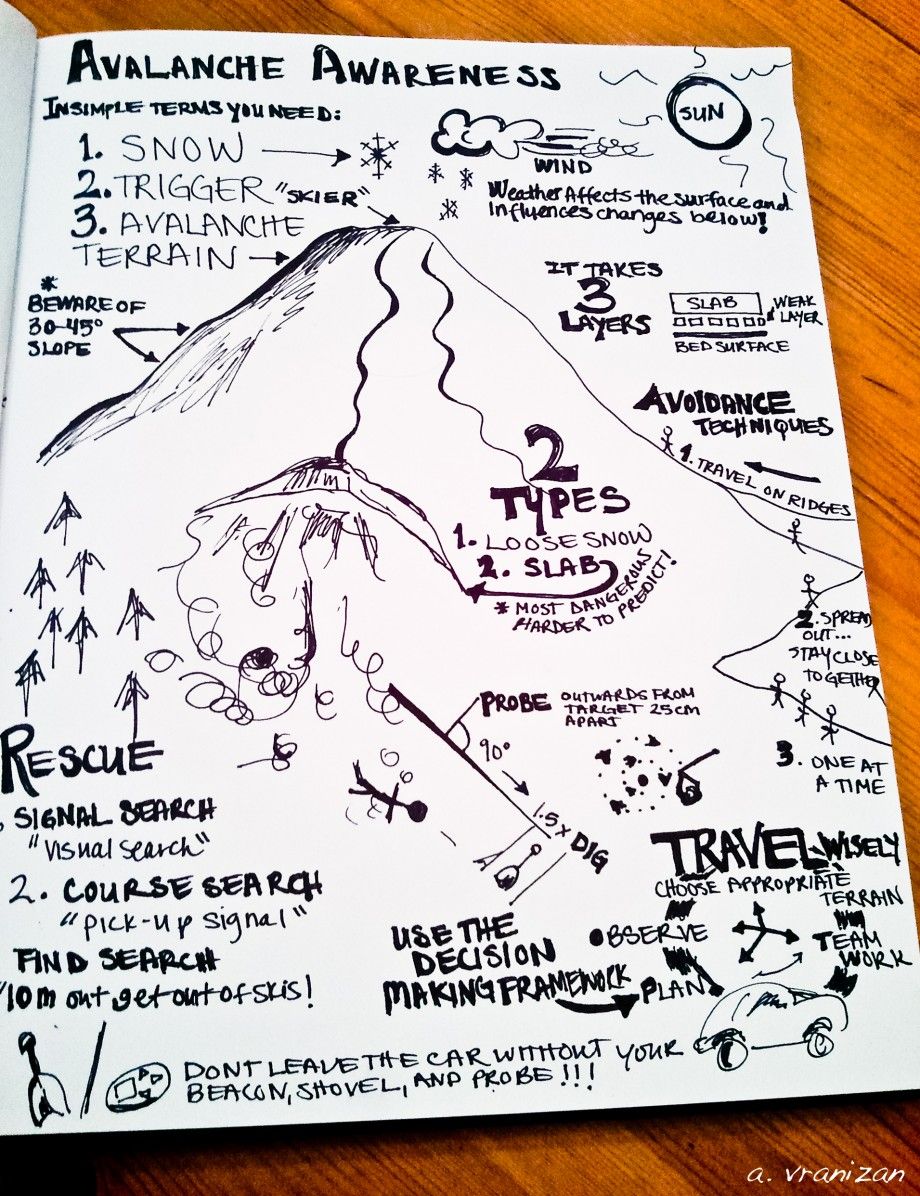 AVALANCHE AWARENESS
IN SIMPLE TERMS YOU NEED:
1. SNOW
2. TRIGGER "SKIER"
3. AVALANCHE
TERRAIN
SUN
WIND
Weather Affects the surface and
influences changes below!
* BEWARE OF
30-45°
SLOPE
IT TAKES
3
LAYERS
SLAB
WEAK
LAYER
BED SURFACE
AVOIDANCE
TECHNIQUES
1. TRAVEL ON RIDGES
2. SPREAD
OUT...
STAY CLOSE
TOGETHER
3. ONE AT
A TIME
2
TYPES
1. LOOSE SNOW
2. SLAB
* MOST DANGEROUS
HARDER TO PREDICT!
PROBE OUTWARDS FROM
TARGET 25CM
APART
90°
1.5 x DIG
RESCUE
SIGNAL SEARCH
"visual search"
2. COURSE SEARCH
"pick-up signal"
FIND SEARCH
10m out get out of skis!
TRAVEL WISELY
CHOOSE APPROPRIATE
TERRAIN
OBSERVE
TEAM
WORK
PLAN
USE THE
DECISION
MAKING FRAMEWORK
DONT LEAVE THE CAR WITHOUT YOUR
BEACON, SHOVEL, AND PROBE!!!
a. vranizan